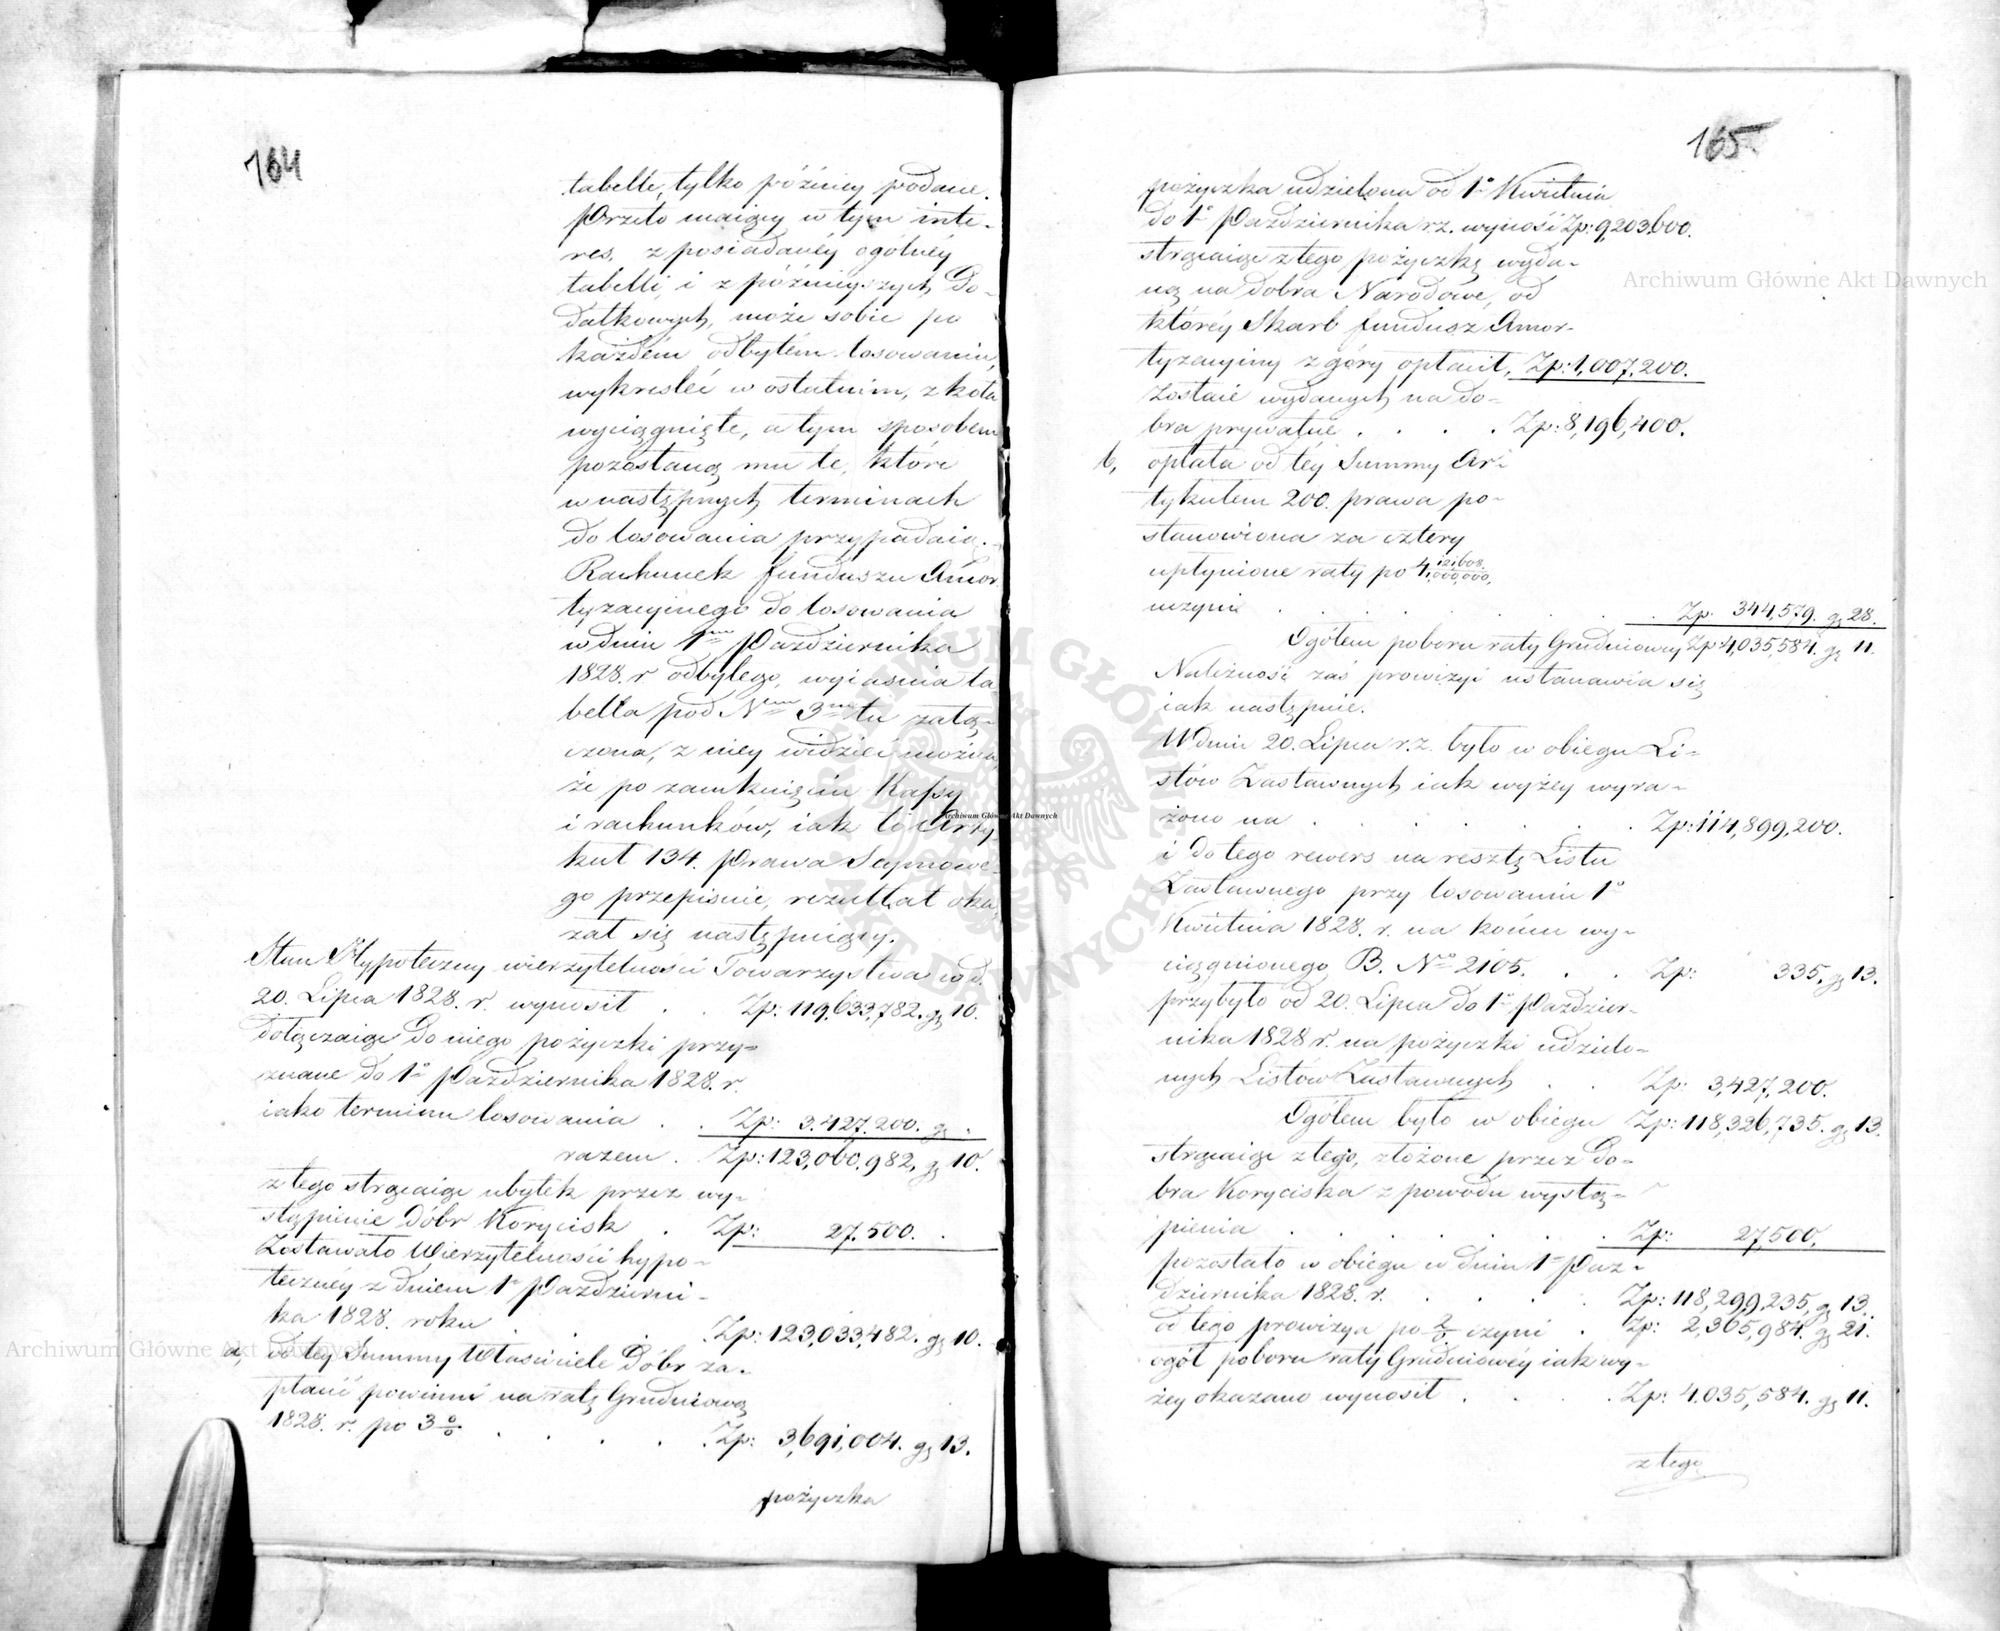 164
tabelle, tylko późniey podane.
Przeto maiący w tym inte-
res, z posiadanéy ogólnéy
tabelli, i z późnieyszych Do-
datkowych, może sobie po
każdém odbytém losowaniu,
wykreslić w ostatnim, z koła
wyciągnięte, a tym sposobem
pozostaną mu te, które
w następnych terminach
do losowania przypadaią.
Rachunek funduszu Amor
tyzacyinego do losowania
w dniu 1m Pazdziernika
1828. r odbytego, wyiasnia ta-
bella pod Nem 3m tu załą-
czona, z niey widzieć można,
że po zamknięciu Kassy
i rachunków, iak to Arty
kuł 134. Prawa Seymowe-
go przepisuie, rezultat oka
zał się następuiący.
Stan Hypoteczny wierzytelności Towarzystwa w d.
20. Lipca 1828. r. wynosił . . Zp: 119,633,782. gr 10.
dołączaiąc do niego pożyczki przy-
znane do 1o Pazdziernika 1828. r.
iako terminu losowania . . Zp: 3,427,200. gr .
razem . Zp: 123,060,982, gr 10.
z tego strąciaiąc ubytek przez wy-
stąpienie Dóbr Korycisk . Zp: 27,500. .
Zostawało Wierzytelności hypo-
teczney z dniem 1o Pazdzierni-
ka 1828. roku . . . Zp: 123,033,482. gr 10.
a, od tey Summy Właściciele Dóbr za-
płacić powinni na ratę Grudniową
1828. r. po 3 % . . . . Zp: 3,691,004. gr 13.
pożyczka
165
pożyczka udzielona od 1o Kwietnia
do 1o Pazdziernika r.z. wynosi Zp: 9,203,600.
strąciaiąc z tego pożyczkę wyda-
ną na dobra Narodowe, od
któréy Skarb fundusz Amor-
tyzacyiny z góry opłacił, Zp: 1,007,200.
Zostaie wydanych na do-
bra prywatne . . . . Zp: 8,196,400.
b, opłata od téy Summy Ar-
tykułem 200. prawa po-
stanowiona za cztery
upłynione raty po 4 121,608/1,000,000,
uczyni . . . . . . . Zp: 344,579. gr 28.
Ogółem poboru raty Grudniowey Zp: 4,035,584. gr 11.
Należność zaś prowizyi ustanawia się
iak następuie.
W dniu 20. Lipca r.z. było w obiegu Li-
stów Zastawnych iak wyżey wyra-
żono na . . . . . . Zp: 114,899,200.
i do tego rewers na resztę Listu
Zastawnego przy losowaniu 1o
Kwietnia 1828. r. na końcu wy-
ciągnionego B. No 2105. . . Zp: 335, gr 13.
przybyło od 20. Lipca do 1o Pazdzier-
nika 1828 r. na pożyczki udzielo-
nych Listów Zastawnych . . Zp: 3,427,200.
Ogółem było w obiegu Zp: 118,326,735. gr 13.
strąciaiąc z tego, złożone przez Do-
bra Koryciska z powodu wystą-
pienia . . . . . . Zp: 27,500.
pozostało w obiegu w dniu 1o Paz-
dziernika 1828. r. . . . . Zp: 118,299,235, gr 13.
od tego prowizya po 2/. czyni . Zp: 2,365,984. gr 21.
ogół poboru raty Grudniowéy iak wy-
żey okazano wynosił . . . . Zp: 4,035,584. gr 11.
z tego
Archiwum Główne Akt Dawnych
Archiwum Główne Akt Dawnych
Archiwum Główne Akt Dawnych
ARCHIWUM GŁÓWNE AKT DAWNYCH